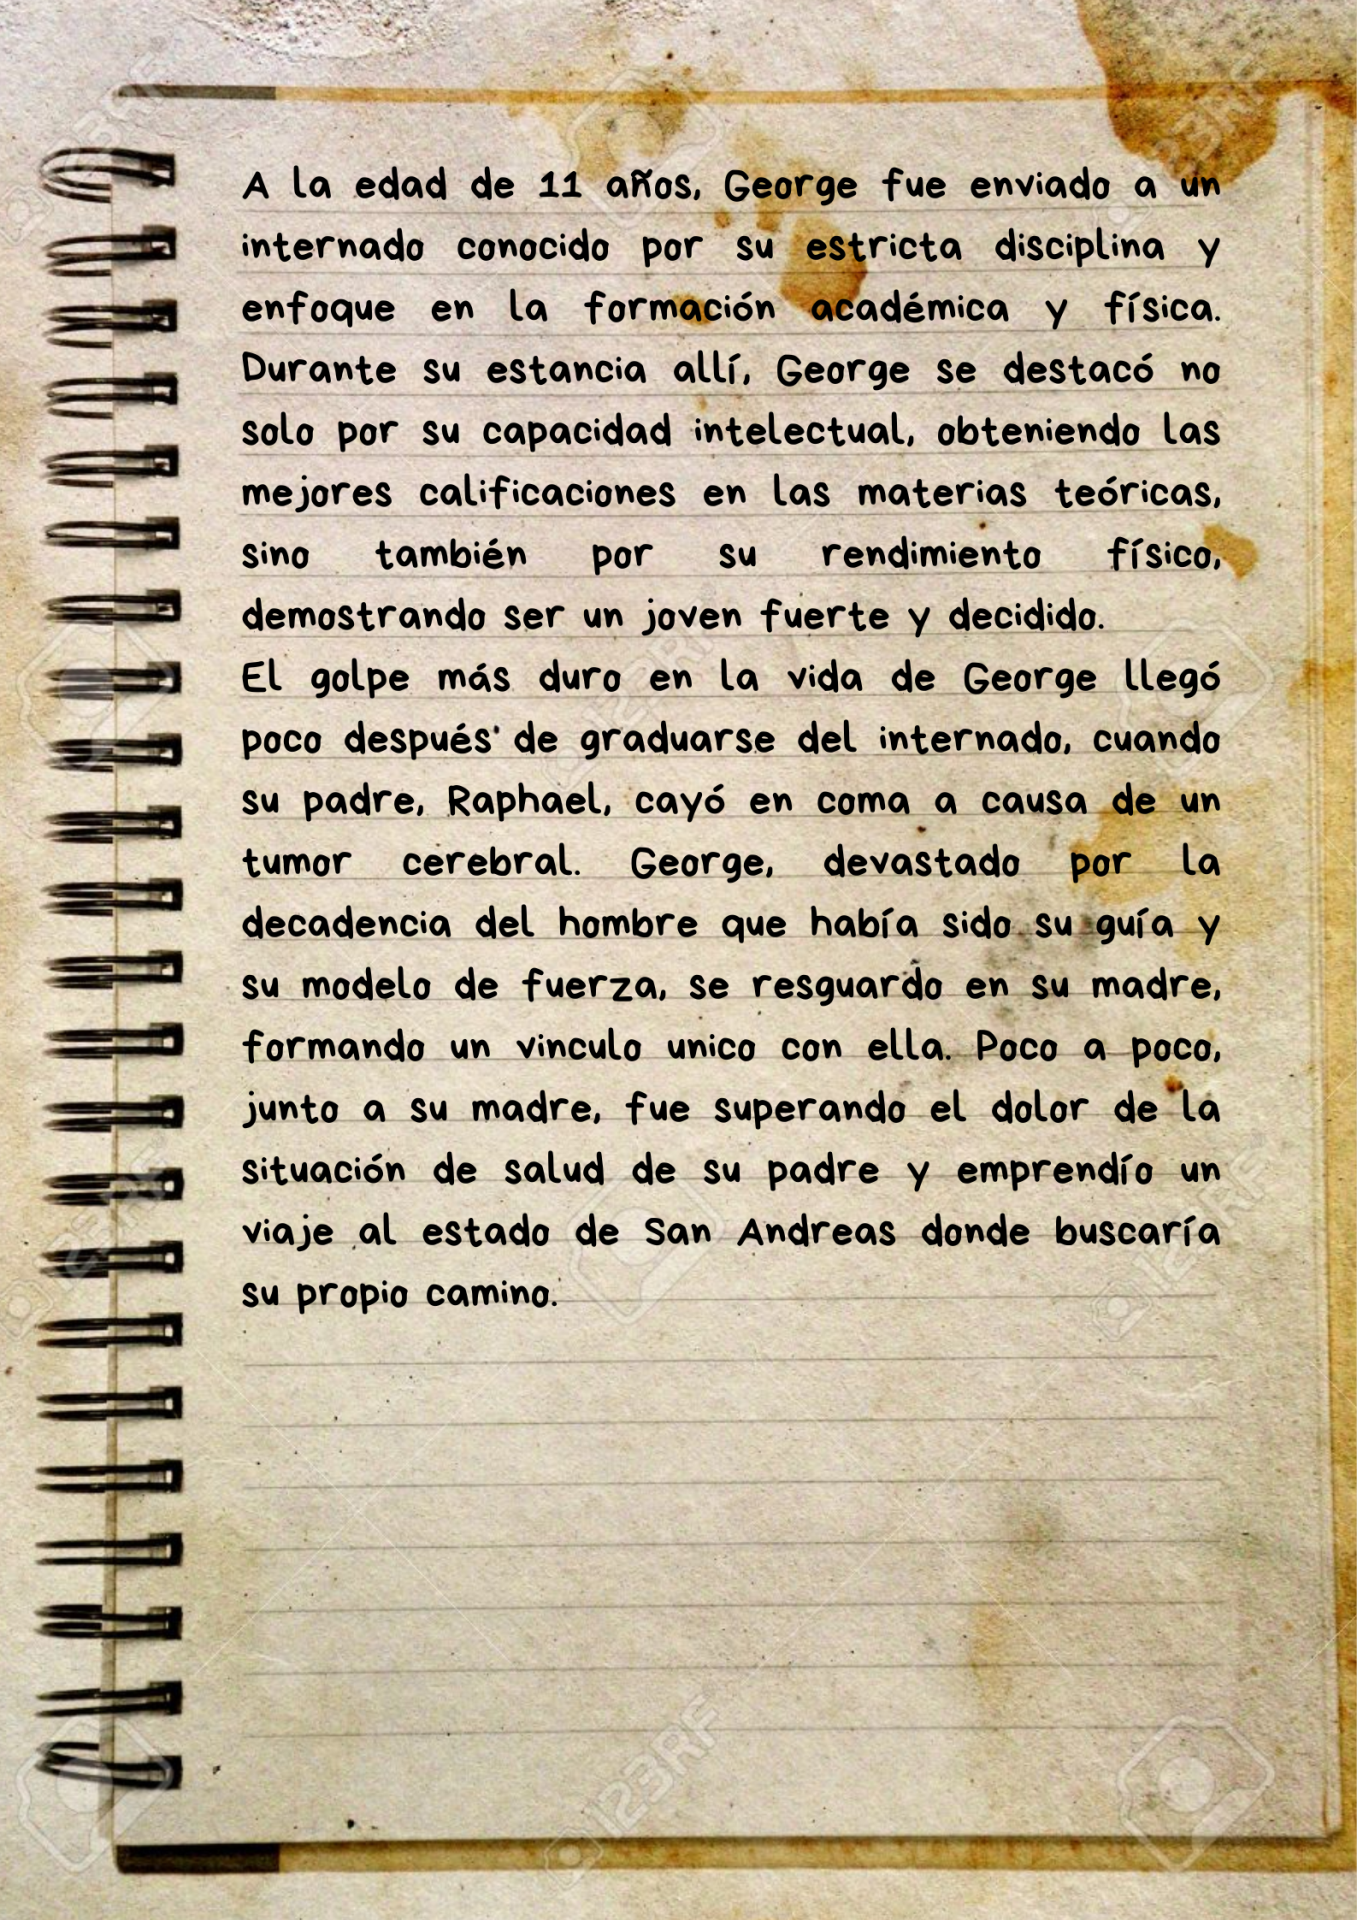 A la edad de 11 años, George fue enviado a un
internado conocido por su estricta disciplina y
enfoque en la formación académica y física.
Durante su estancia allí, George se destacó no
solo por su capacidad intelectual, obteniendo las
mejores calificaciones en las materias teóricas,
sino también por su rendimiento físico,
demostrando ser un joven fuerte y decidido.
El golpe más duro en la vida de George llegó
poco después de graduarse del internado, cuando
su padre, Raphael, cayó en coma a causa de un
tumor cerebral. George, devastado por la
decadencia del hombre que había sido su guía y
su modelo de fuerza, se resguardo en su madre,
formando un vinculo unico con ella. Poco a poco,
junto a su madre, fue superando el dolor de la
situación de salud de su padre y emprendío un
viaje al estado de San Andreas donde buscaría
su propio camino.
123RF
123RF
123RF
123RF
123RF
123RF